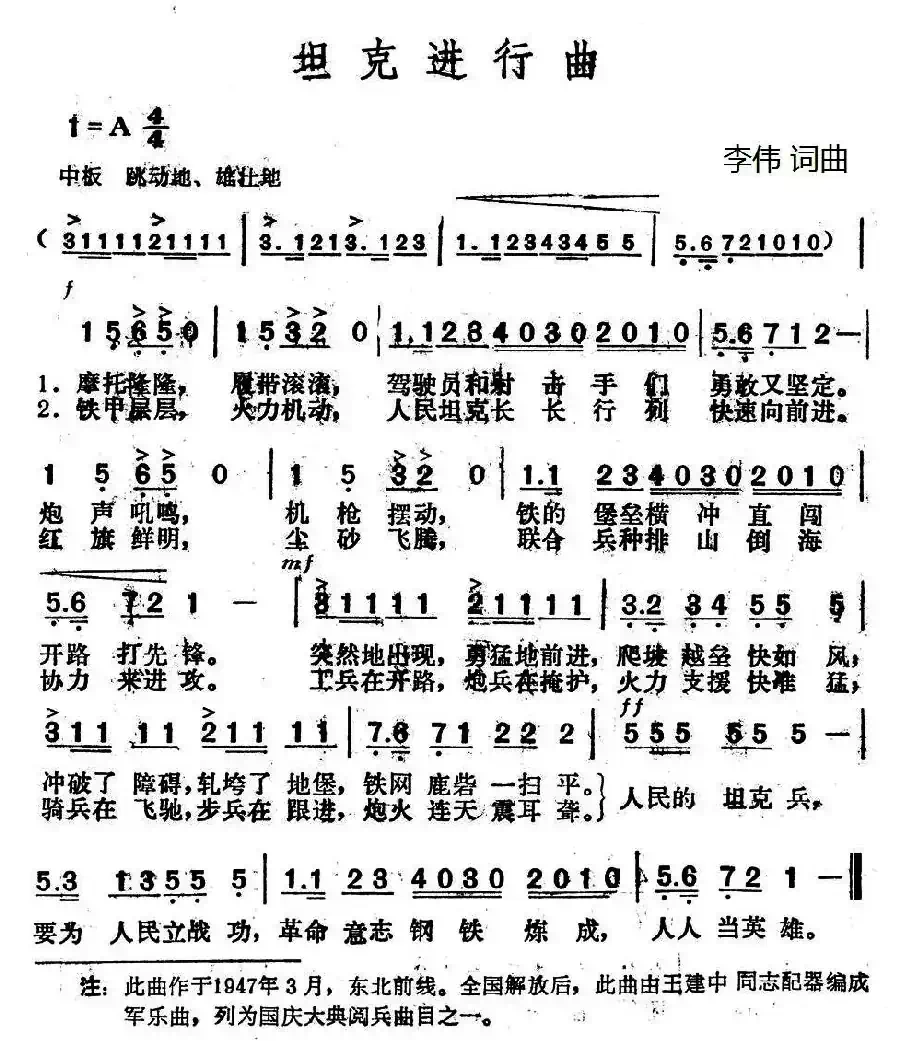 坦克进行曲
1=A 4/4
李伟 词曲
中板 跳动地、雄壮地
(311111211111 | 3.1213.123 | 1.12343455 | 5.6721010) |
f
15650 | 15320 | 1.123403020 10 | 5.6712— |
1. 摩托隆隆， 履带滚滚， 驾驶员和射击手们 勇敢又坚定。
2. 铁甲层层， 火力机动， 人民坦克长长行列 快速向前进。
1 5 65 0 | 1 5 32 0 | 1.1 2340302010 |
炮声吼鸣， 机枪摆动， 铁的堡垒横冲直闯
红旗鲜明， 尘砂飞腾， 联合兵种排山倒海
mf
5.6 72 1 — | 31111 21111 | 3.2 34 55 5 |
开路 打先锋。 突然地出现，勇猛地前进，爬坡越垒快如风，
协力 来进攻。 工兵在开路，炮兵在掩护，火力支援快准猛，
ff
311 11 211 11 | 7.6 71 22 2 | 555 555 5 — |
冲破了障碍，轧垮了地堡，铁网鹿砦一扫平。} 人民的 坦克兵，
骑兵在飞驰，步兵在跟进，炮火连天震耳聋。}
5.3 1355 5 | 1.1 23 4030 2010 | 5.6 72 1 — ‖
要为 人民立战功，革命意志钢铁炼成， 人人当英雄。
注：此曲作于1947年3月，东北前线。全国解放后，此曲由王建中同志配器编成
军乐曲，列为国庆大典阅兵曲目之一。